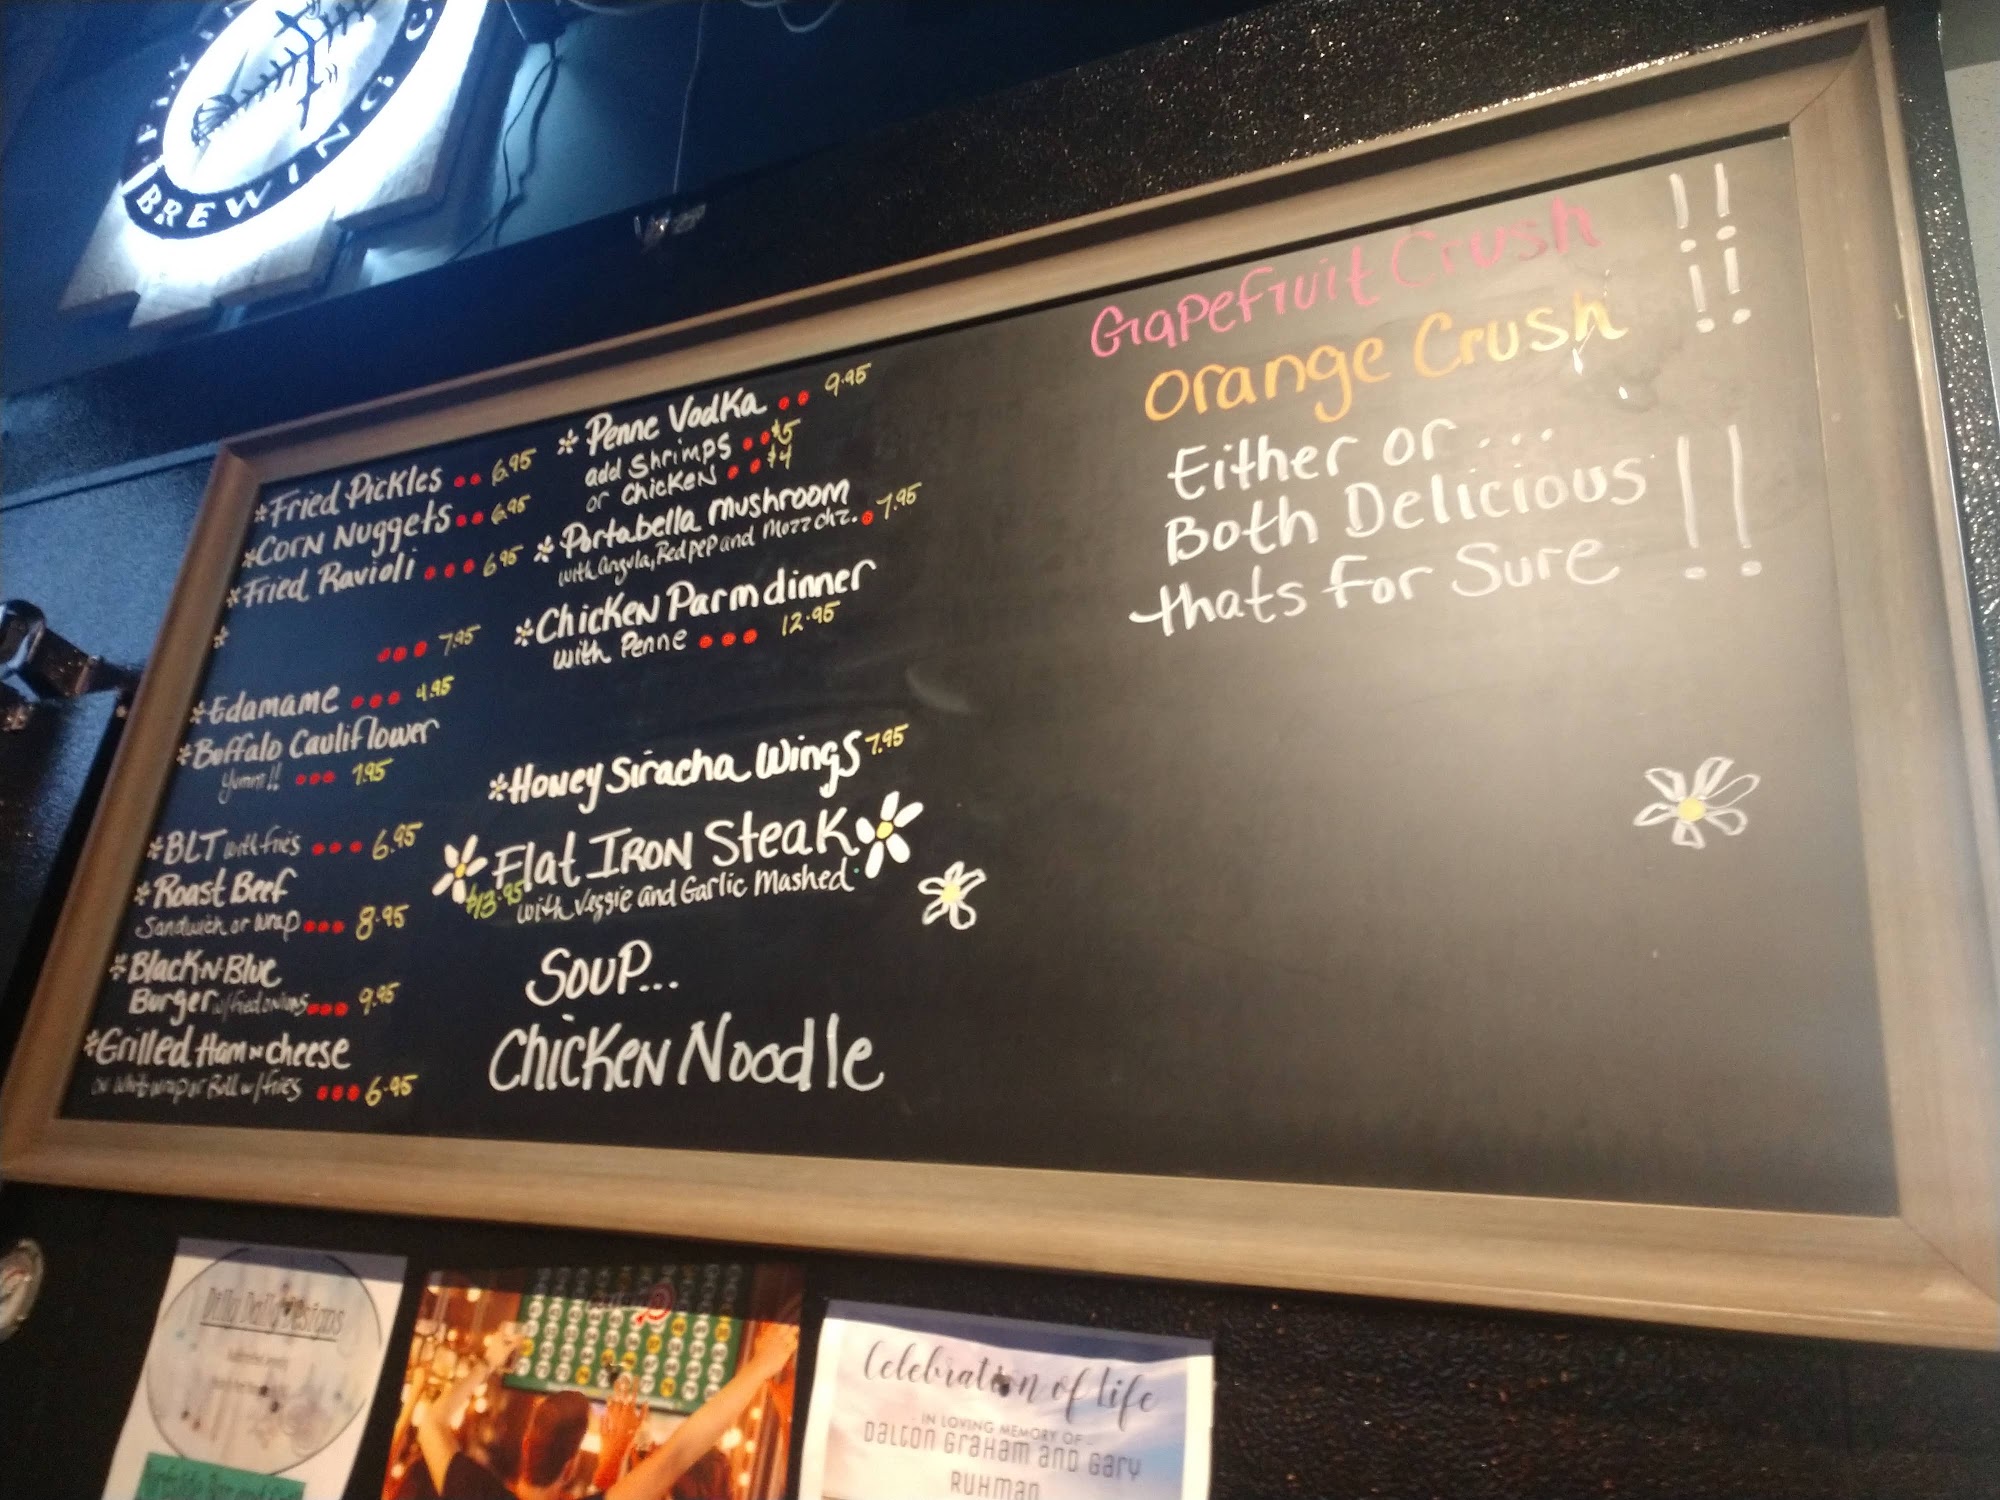 BREWING
*Fried Pickles ... 6.95
*Corn Nuggets.. 6.95
*Fried Ravioli ... 6.95
* ... 7.95
*Edamame ... 4.95
*Buffalo Cauliflower
Yumm!! ... 7.95
*BLT with fries ... 6.95
*Roast Beef
Sandwich or wrap... 8.95
*Black N Blue
Burger w/fried onions... 9.95
*Grilled Ham N cheese
on White wrap or Roll w/fries ... 6.95
*Penne Vodka .. 9.95
add Shrimps ..$5
or Chicken ..$4
*Portabella mushroom
with arugula, Red pep and Mozz chz. . 7.95
*Chicken Parm dinner
with Penne ... 12.95
*Honey Siracha Wings 7.95
Flat Iron Steak
$13.95 with Veggie and Garlic Mashed.
Soup...
Chicken Noodle
Grapefruit Crush !!
Orange Crush !!
Either or ...
Both Delicious !!
thats for Sure
Dilly Dally Designs
Celebration of Life
IN LOVING MEMORY OF
Dalton Graham and Gary
Ruhman